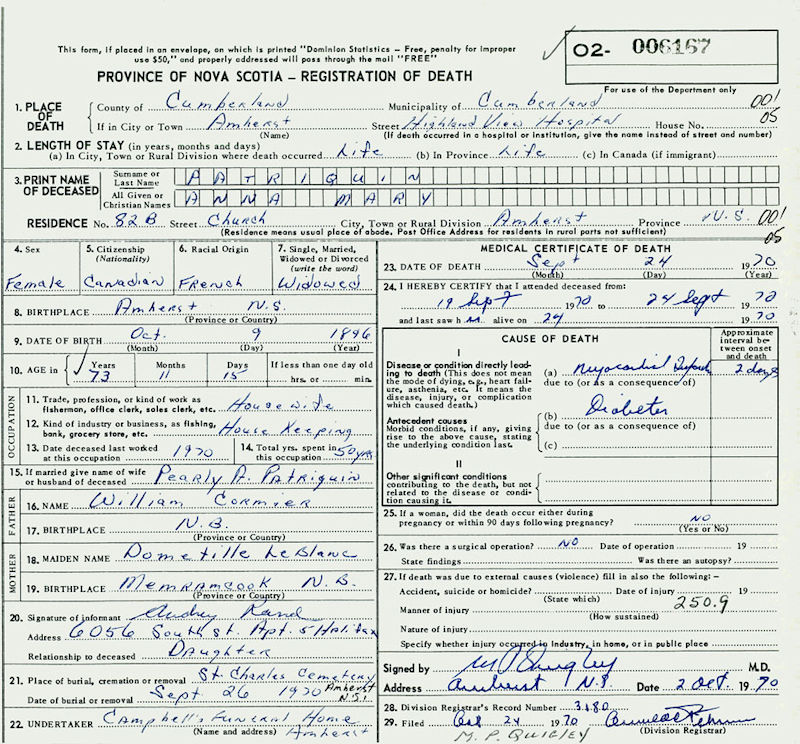 This form, if placed in an envelope, on which is printed "Dominion Statistics – Free, penalty for improper
use $50," and properly addressed will pass through the mail "FREE"
02- 006167
PROVINCE OF NOVA SCOTIA – REGISTRATION OF DEATH
For use of the Department only
1. PLACE OF DEATH
County of Cumberland Municipality of Cumberland 001
If in City or Town Amherst Street Highland View Hospital House No. 05
(Name) (If death occurred in a hospital or institution, give the name instead of street and number)
2. LENGTH OF STAY (in years, months and days)
(a) In City, Town or Rural Division where death occurred Life (b) in Province Life (c) in Canada (if immigrant)
3. PRINT NAME OF DECEASED
Surname or Last Name PATRIQUIN
All Given or Christian Names ANNA MARY
RESIDENCE No. 82B Street Church City, Town or Rural Division Amherst Province N.S. 001
(Residence means usual place of abode. Post Office Address for residents in rural parts not sufficient) 05
4. Sex Female
5. Citizenship (Nationality) Canadian
6. Racial Origin French
7. Single, Married, Widowed or Divorced (write the word) Widowed
8. BIRTHPLACE Amherst N.S.
(Province or Country)
9. DATE OF BIRTH Oct. 9 1896
(Month) (Day) (Year)
10. AGE in Years 73 Months 11 Days 15 If less than one day old hrs. or min.
OCCUPATION
11. Trade, profession or kind of work as fisherman, office clerk, sales clerk, etc. Housewife
12. Kind of industry or business, as fishing, bank, grocery store, etc. House Keeping
13. Date deceased last worked at this occupation 1970
14. Total yrs. spent in this occupation 50 yrs
15. If married give name of wife or husband of deceased Pearly A. Patriquin
FATHER
16. NAME William Cormier
17. BIRTHPLACE N.B.
(Province or Country)
MOTHER
18. MAIDEN NAME Dometille LeBlanc
19. BIRTHPLACE Memramcook N.B.
(Province or Country)
20. Signature of informant Audrey Rand
Address 6056 South st. Apt. 5 Halifax
Relationship to deceased Daughter
21. Place of burial, cremation or removal St Charles Cemetery
Amherst N.S.
Date of burial or removal Sept. 26 1970
22. UNDERTAKER Campbell's Funeral Home
(Name and address) Amherst
MEDICAL CERTIFICATE OF DEATH
23. DATE OF DEATH Sept 24 1970
(Month) (Day) (Year)
24. I HEREBY CERTIFY that I attended deceased from:
19 Sept 1970 to 24 Sept 1970
and last saw h alive on 24 1970
CAUSE OF DEATH
Approximate interval between onset and death
I
Disease or condition directly leading to death (This does not mean the mode of dying, e.g., heart failure, asthenia, etc. It means the disease, injury, or complication which caused death.)
(a) Myocardial Infarct 2 days
due to (or as a consequence of)
Antecedent causes
Morbid conditions, if any, giving rise to the above cause, stating the underlying condition last.
(b) Diabetes
due to (or as a consequence of)
(c)
II
Other significant conditions contributing to the death, but not related to the disease or condition causing it.
25. If a woman, did the death occur either during pregnancy or within 90 days following pregnancy? NO
(Yes or No)
26. Was there a surgical operation? NO Date of operation 19
State findings Was there an autopsy?
27. If death was due to external causes (violence) fill in also the following:–
Accident, suicide or homicide? Date of injury 19
(State which) 250.9
Manner of injury
(How sustained)
Nature of injury
Specify whether injury occurred in industry, in home, or in public place
Signed by M P Quigley M.D.
Address Amherst N.S. Date 2 Oct. 1970
28. Division Registrar's Record Number 3180
29. Filed Oct 24 1970
(Division Registrar)
M. P. QUIGLEY